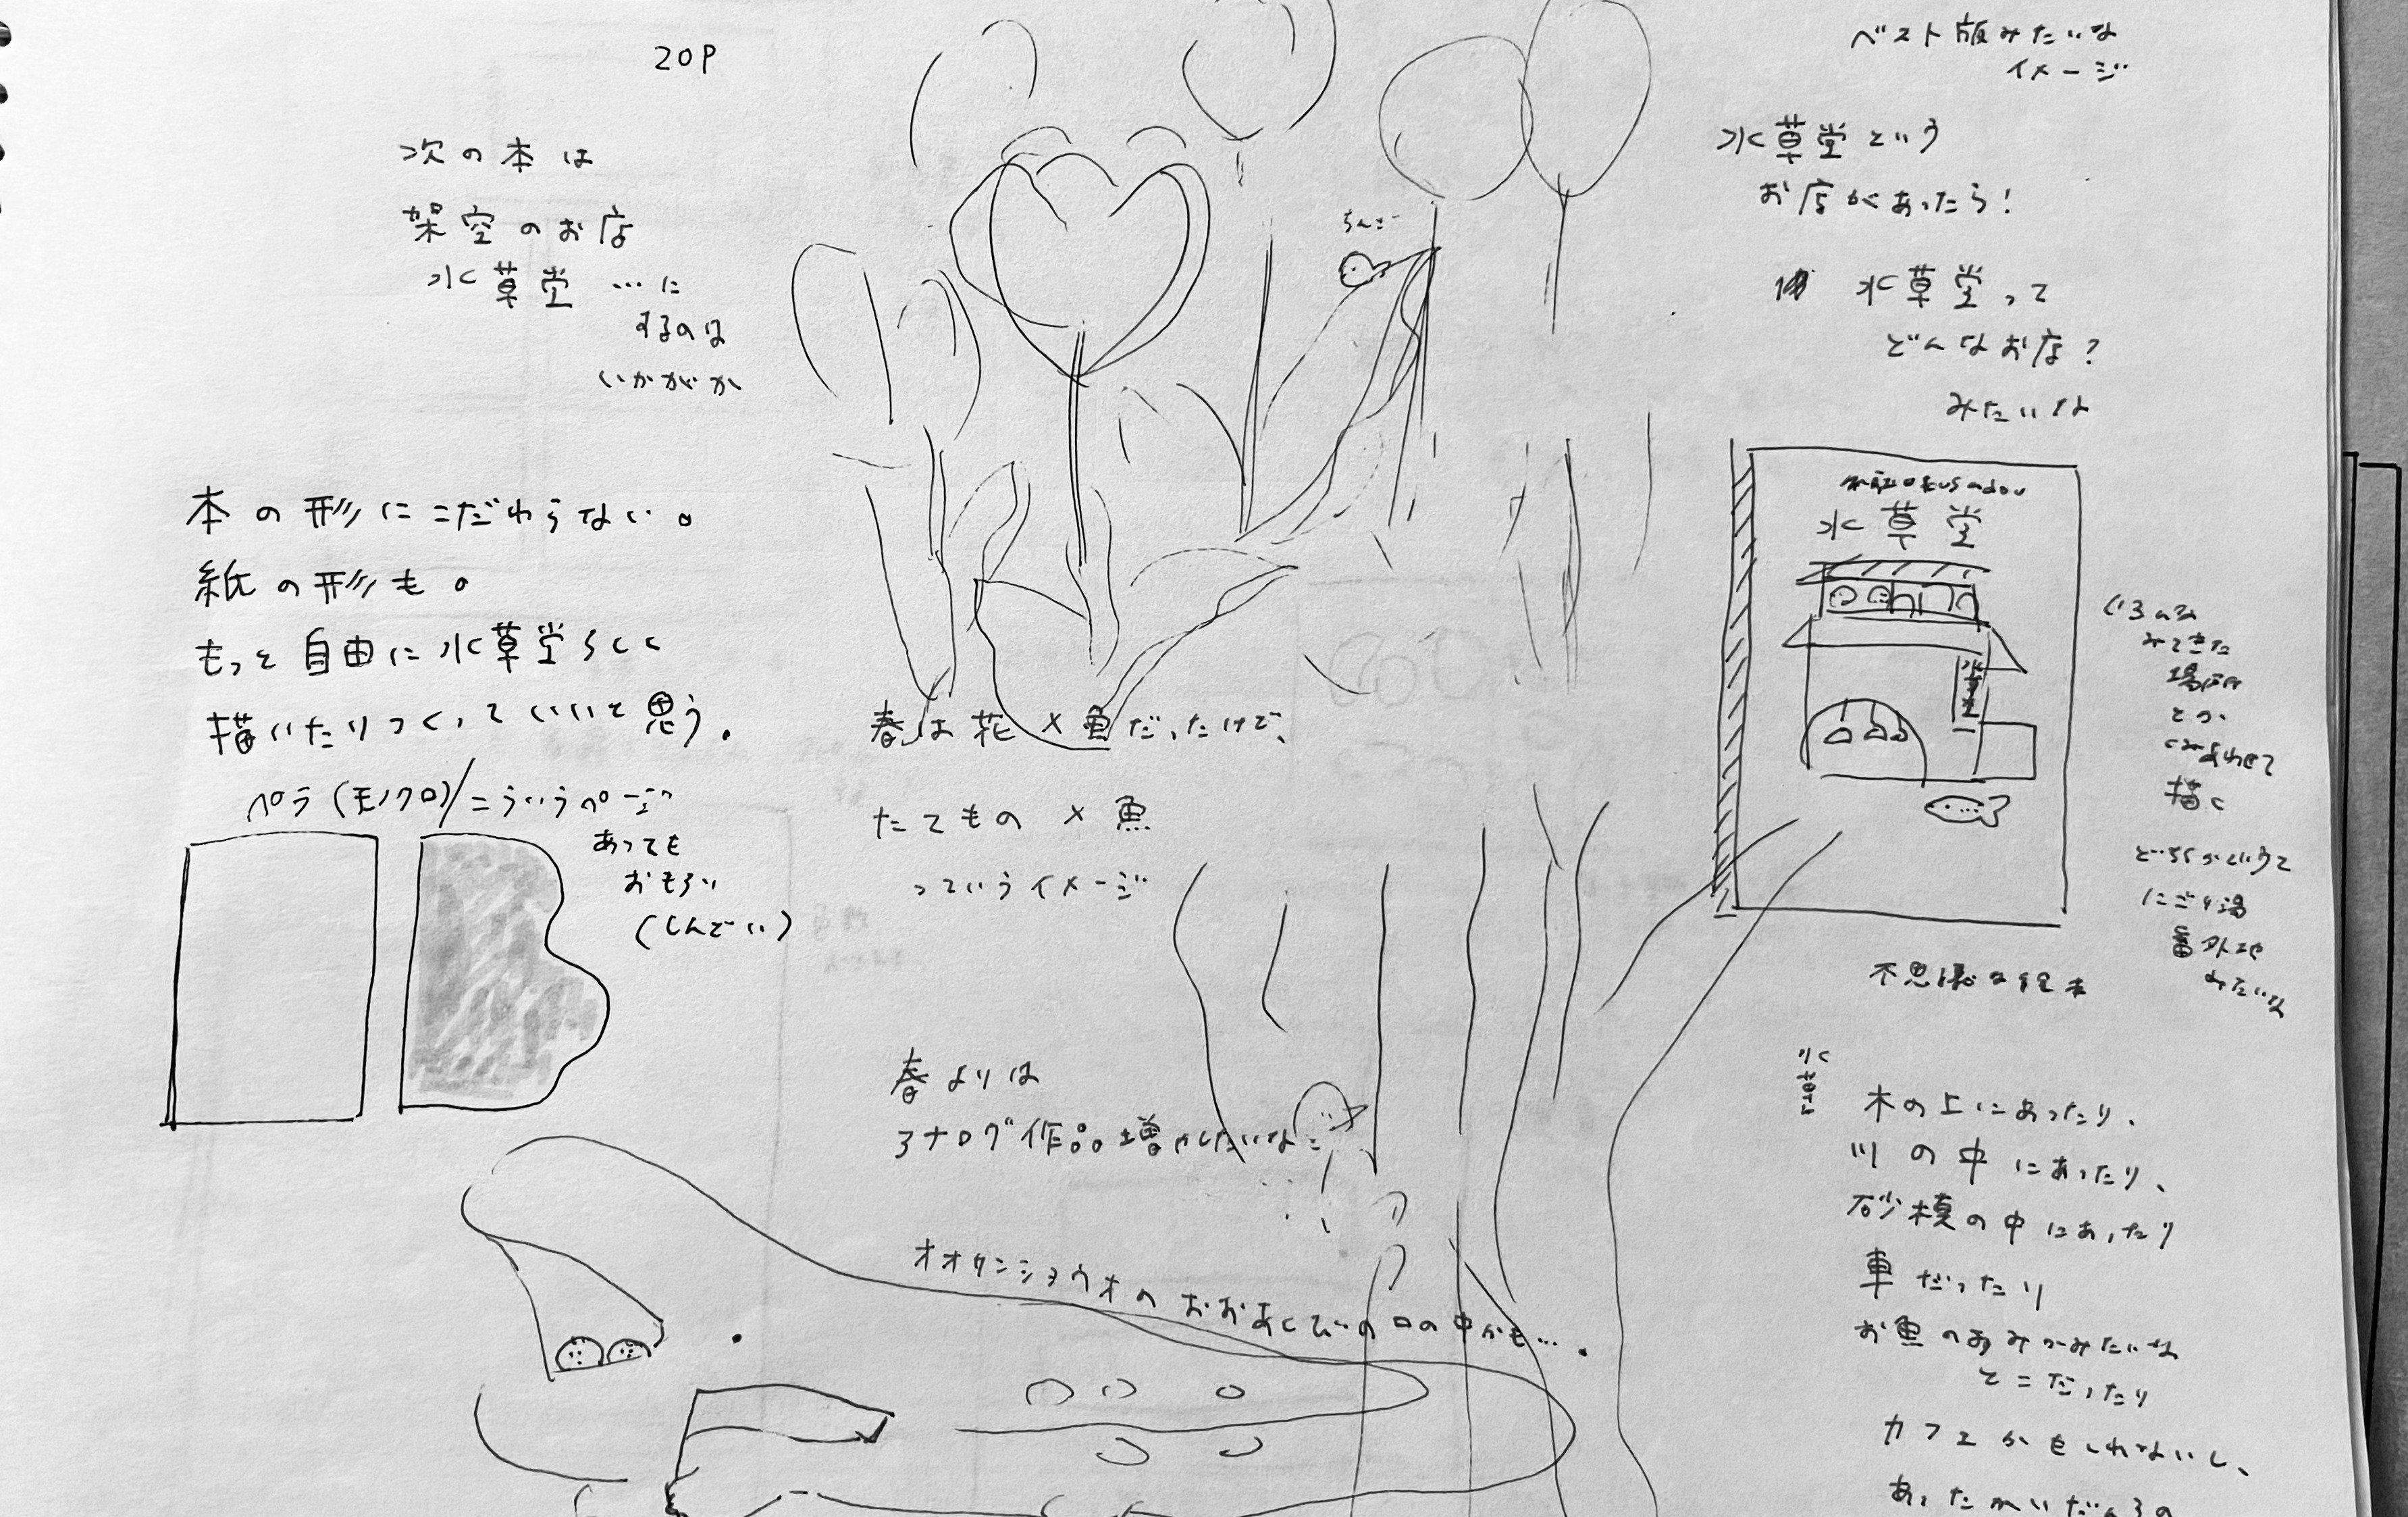 20P
次の本は
架空のお店
水草堂…に
するのは
いかがか
本の形にこだわらない。
紙の形も。
もっと自由に水草堂らしく
描いたりつくっていいと思う.
ペラ(モノクロ)/こういうページ
あっても
おもろい
(しんどい)
春は花×魚だったけど、
たてもの×魚
っていうイメージ
春よりは
アナログ作品増やしたいな
オオサンショウウオの おおあくびの口の中かも….
ベスト版みたいな
イメージ
水草堂という
お店があったら!
水草堂って
どんなお店?
みたいな
水草堂
水草堂
いろんな
みてきた
場所
とか
くみあわせて
描く
どっちかというと
にごり湯
番外地
みたいな
不思議な
木の上にあったり、
川の中にあったり、
砂漠の中にあったり
車だったり
お魚のあみみたいな
とこだったり
カフェかもしれないし、
あったかい